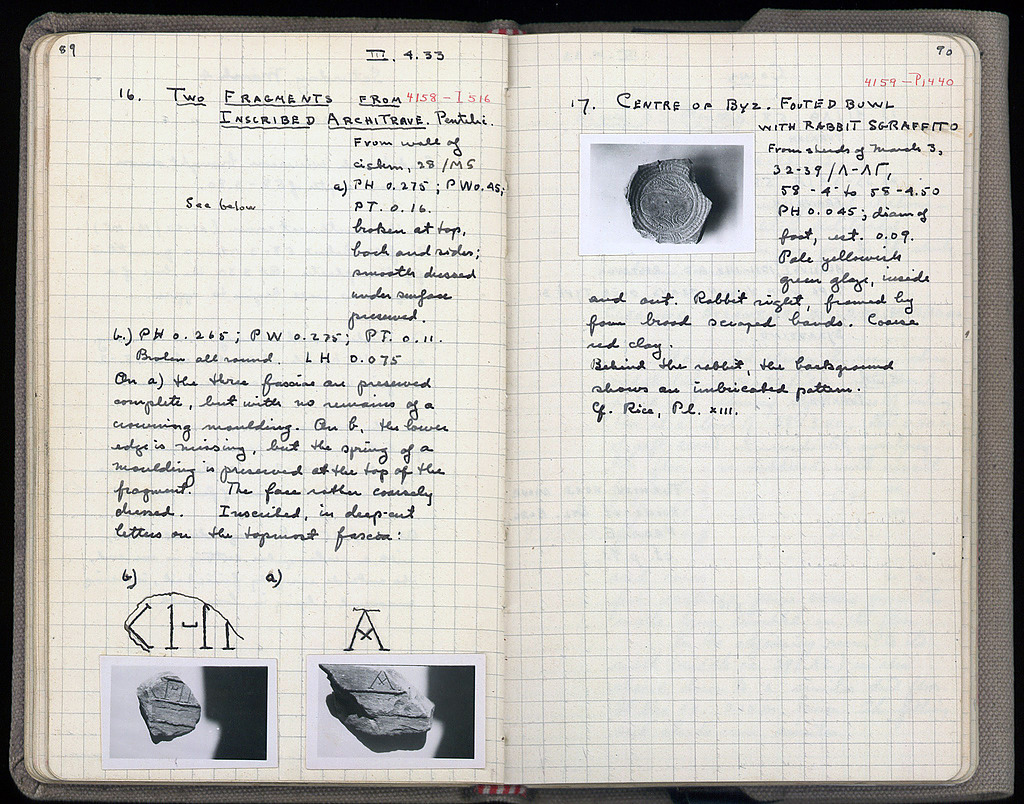 89
III. 4.33
16. TWO FRAGMENTS FROM 4158 - I 516
INSCRIBED ARCHITRAVE. Pentelic.
From wall of
cistern, 28/ΜΣ
a) PH 0.275; PW 0.45;
See below
PT. 0.16.
broken at top,
back and sides;
smooth dressed
under surface
preserved.
b.) PH 0.265; PW 0.275; PT. 0.11.
Broken all round. LH 0.075
On a) the three fasciae are preserved
complete, but with no remains of a
crowning moulding. On b, the lower
edge is missing, but the spring of a
moulding is preserved at the top of the
fragment. The face rather coarsely
dressed. Inscribed, in deep-cut
letters on the topmost fascia:
b) a)
Α
90
4159 - P1440
17. CENTRE OF BYZ. FOOTED BOWL
WITH RABBIT SGRAFFITO
From sherds of March 3,
32-39/Λ-ΛΓ,
58 -4 to 58 -4.50
PH 0.045; diam of
foot, est. 0.09.
Pale yellowish
green glaze, inside
and out. Rabbit right, framed by
four broad scraped bands. Coarse
red clay.
Behind the rabbit, the background
shows an imbricated pattern.
Cf. Rice, Pl. XIII.